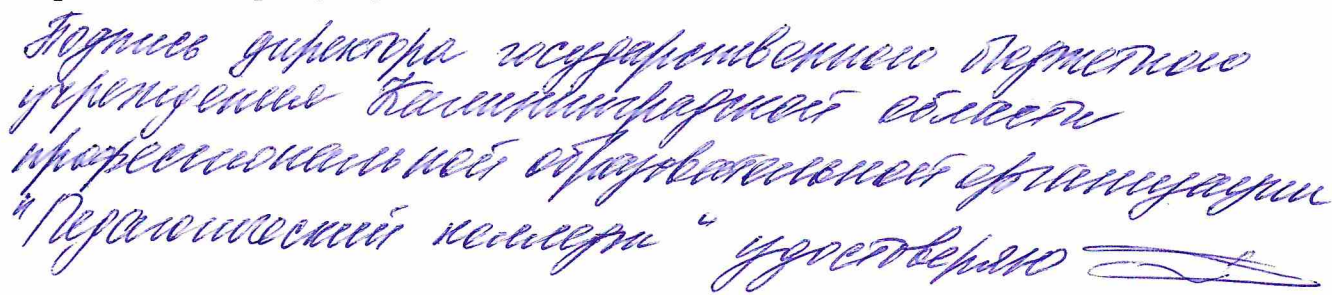 Подпись директора государственного бюджетного
учреждения Калининградской области
профессиональной образовательной организации
"Педагогический колледж" удостоверяю